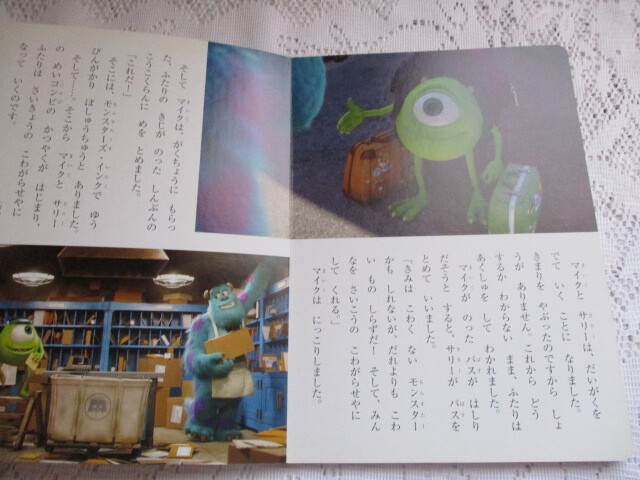 マイクと サリーは、だいがくを
でて いく ことに なりました。
きまりを やぶったのですから しょ
うが ありません。これから どう
するか わからない まま、ふたりは
あくしゅを して わかれました。
マイクが のった バスが はしり
だそうと すると、サリーが バスを
とめて いいました。
「きみは こわく ない モンスター
かも しれないが、だれよりも こわ
い もの しらずだ！ そして、みん
なを さいこうの こわがらせやに
して くれる。」
マイクは にっこりしました。
そして マイクは、がくちょうに もらっ
た、ふたりの きじが のった しんぶんの
こうこくらんに めを とめました。
「これだ！」
そこには、モンスターズ・インクで ゆう
びんがかり ぼしゅうちゅうと ありました。
そして……、そこから マイクと サリー
の めいコンビの かつやくが はじまり、
ふたりは さいきょうの こわがらせやに
なって いくのです。